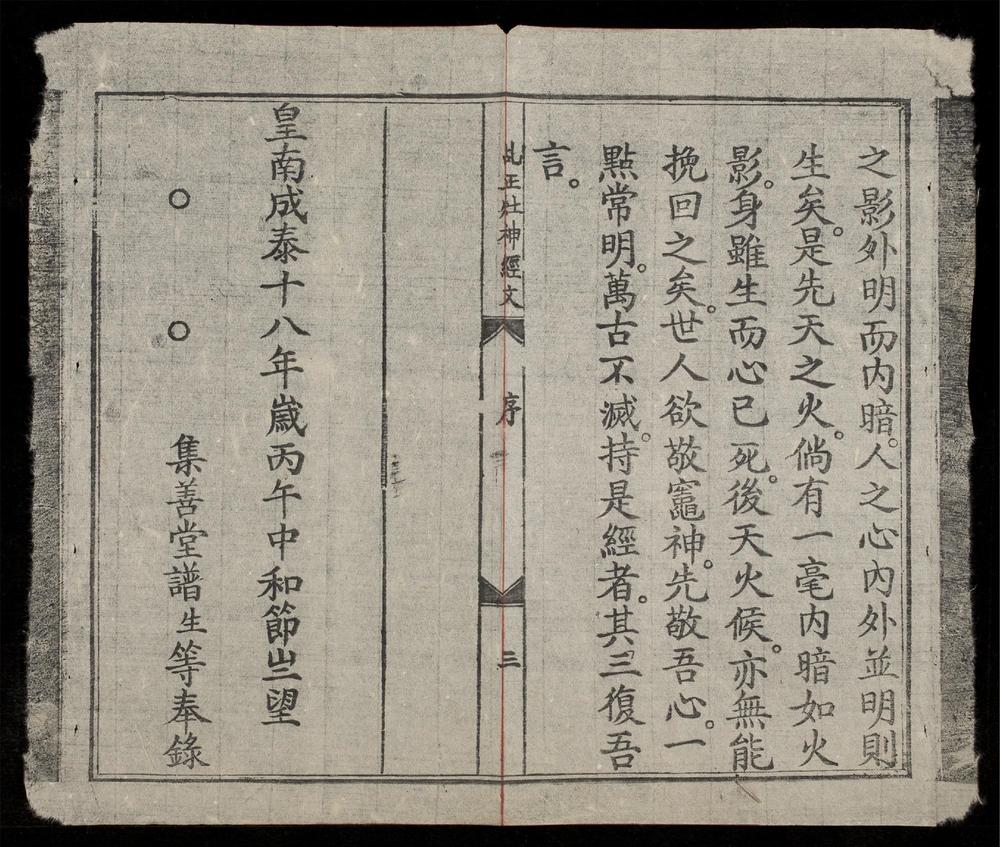 之影外明而内暗。人之心内外並明則
生矣。是先天之火。倘有一毫内暗如火
影。身雖生而心已死。後天火候。亦無能
挽回之矣。世人欲敬竈神。先敬吾心。一
點常明。萬古不滅。持是經者。其三復吾
言。
乩正灶神經文
序
三
皇南成泰十八年歲丙午中和節亗望
集善堂譜生等奉錄